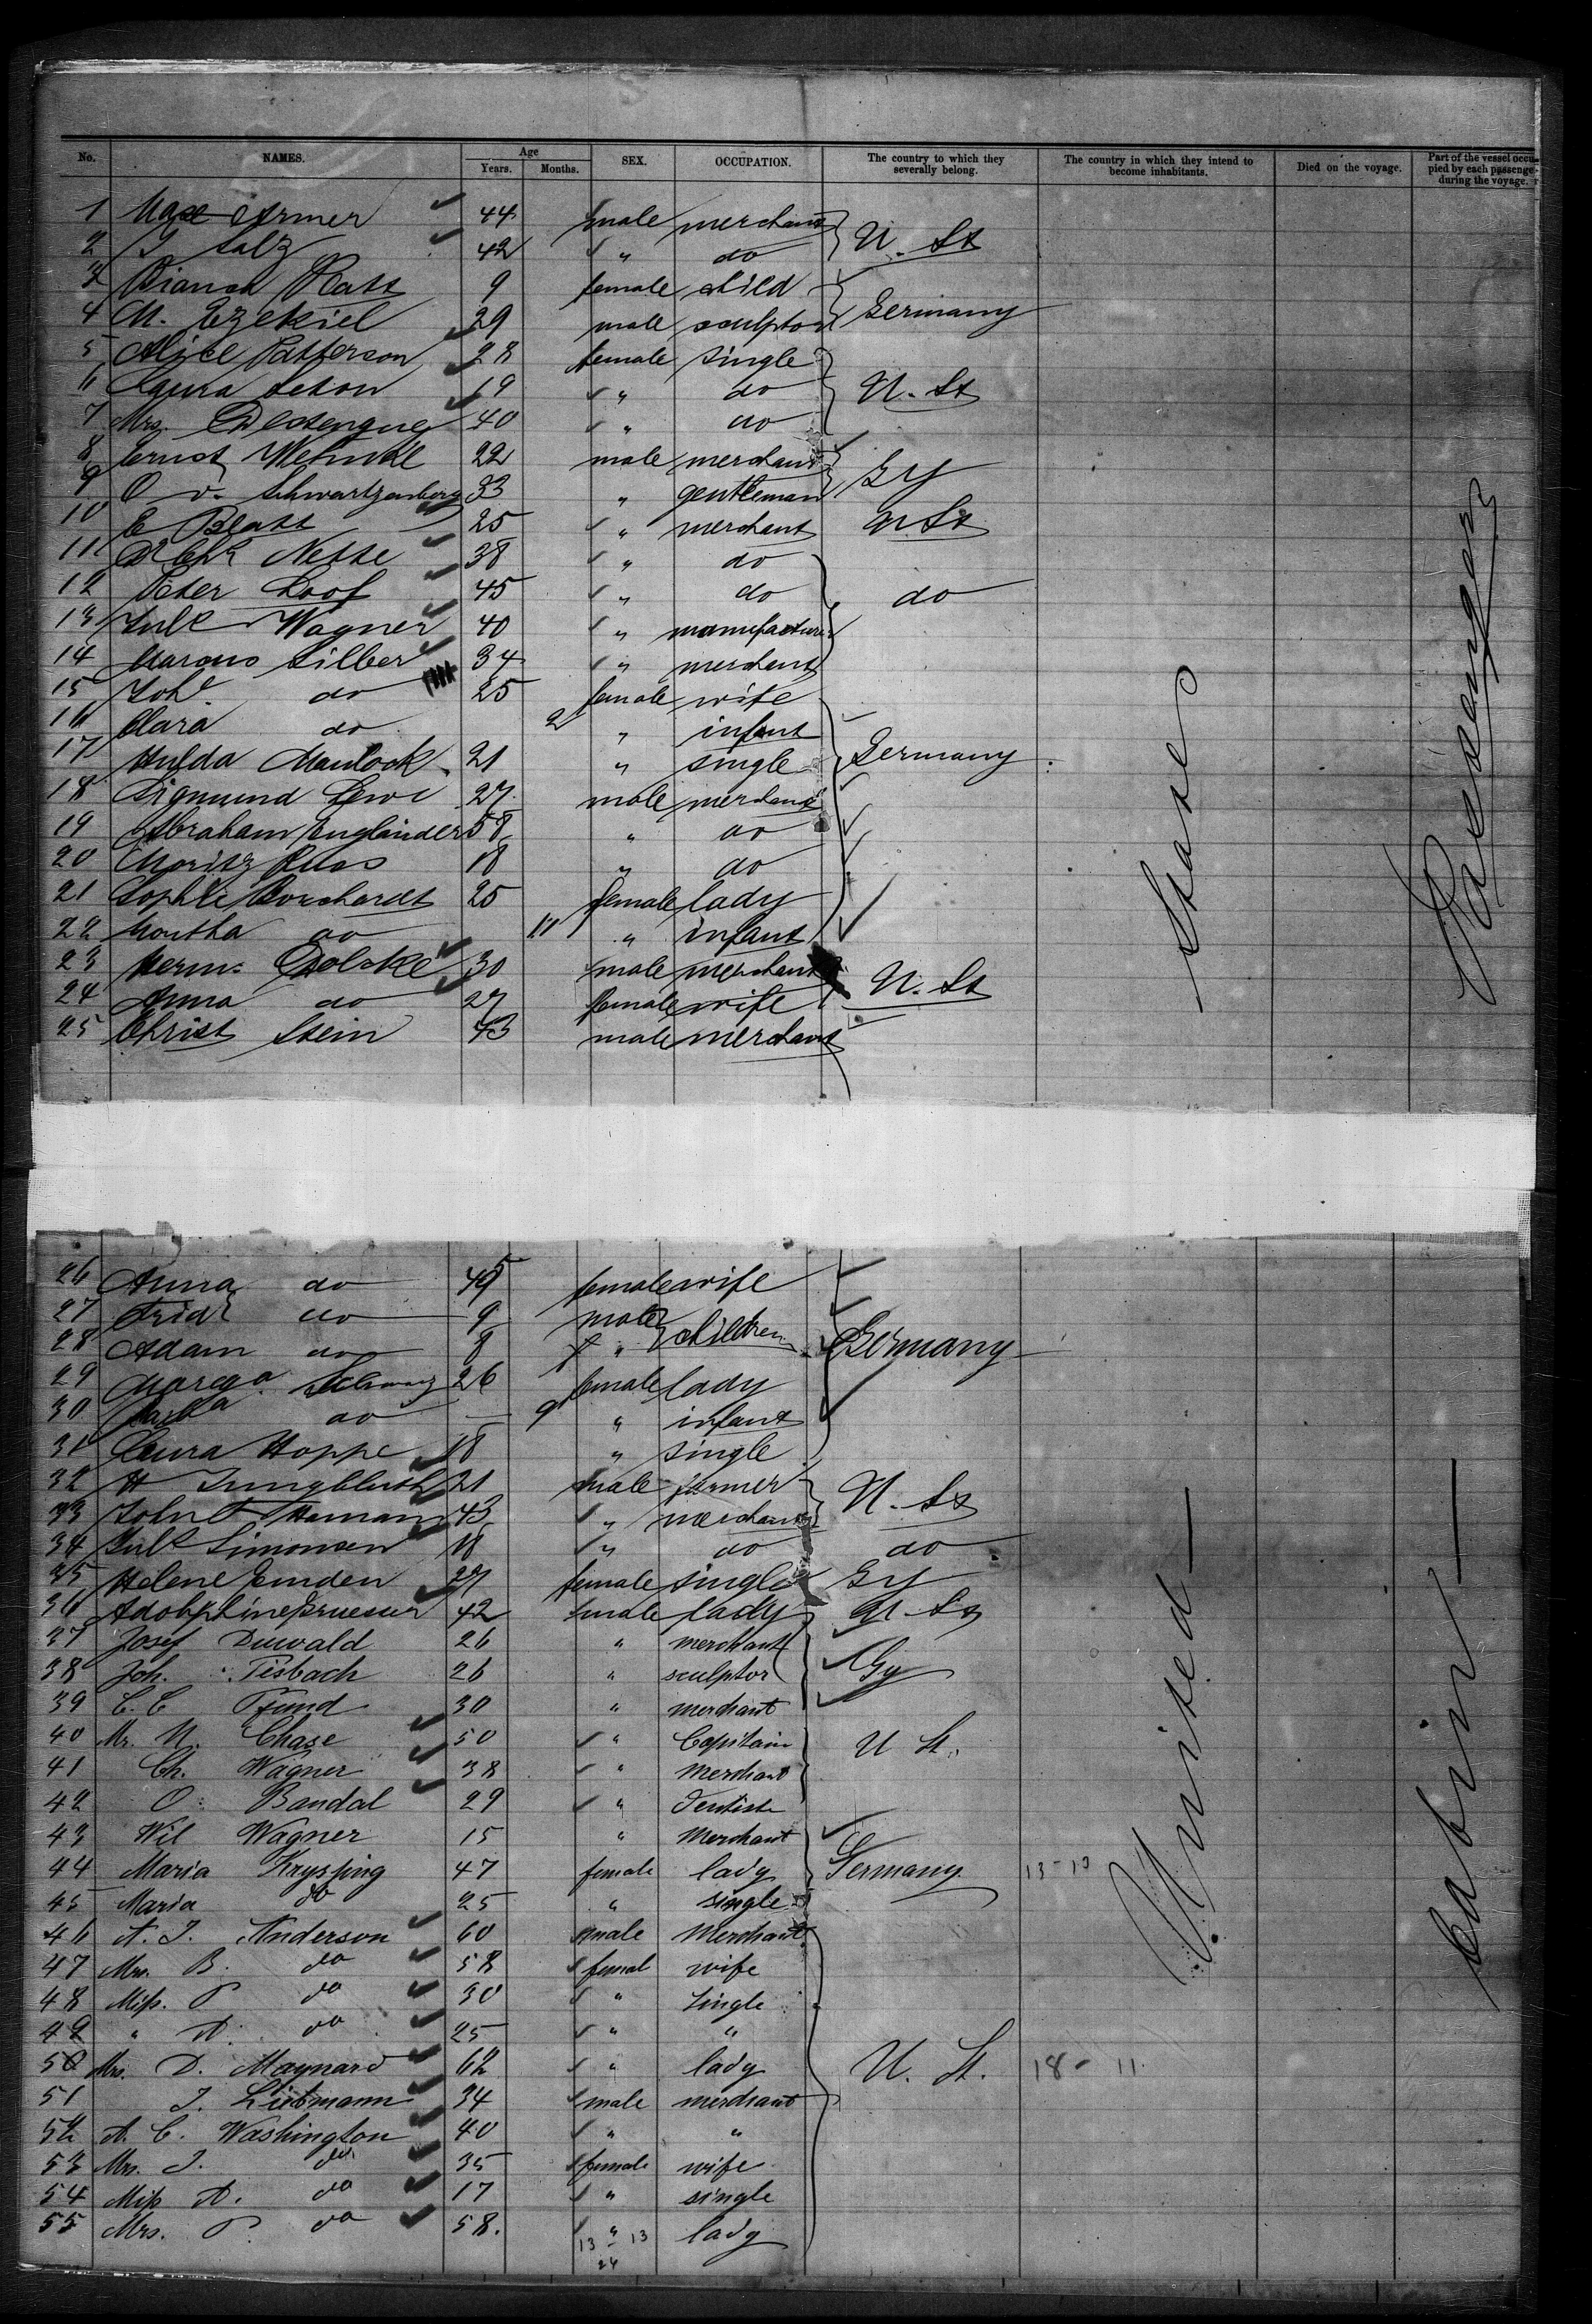 No. NAMES. Age Years. Months. SEX. OCCUPATION. The country to which they severally belong. The country in which they intend to become inhabitants. Died on the voyage. Part of the vessel occupied by each passenger during the voyage.
1 Max Armer 44 male merchant
2 J Salz 42 " do U. St
3 Bianca 9 female child
4 M. Ezekiel 29 male sculptor Germany
5 Alice Patterson 28 female single
6 Laura 19 " do U. St
7 Mrs. 40 " do
8 Ernst 22 male merchant
9 O v. Schwartzenberg 33 " gentleman Gy
10 E Blass 25 " merchant U St
11 Nesse 38 " do
12 Peter Loof 45 " do do
13 Jul Wagner 40 " manufacturer
14 Marcus Silber 34 " merchant
15 Joh. do 25 female wife
16 Clara do 2 " infant
17 Hulda 21 " single Germany
18 Sigmund Lewi 27 male merchant
19 Abraham Engländer 58 " do
20 Moritz 18 " do
21 Sophie Borchardt 25 female lady
22 Martha do 11 " infant
23 Herm. 30 male merchant
24 Anna do 27 female wife U. St
25 Christ Stein 43 male merchant
26 Anna do 45 female wife
27 Frid do 9 male
28 Adam do 8 " children Germany
29 Schwarz 26 female lady
30 do — 9 " infant
31 Laura Hoppe 18 " single
32 H Jungbluth 21 male farmer
33 John Haman 43 " merchant U. St
34 Jul Simonsen 18 " do do
35 Helene Emden 27 female single Gy
36 42 female lady U. St
37 Josef Duwald 26 " merchant
38 Joh. Tisbach 26 " sculptor Gy
39 C. C Pfund 30 " merchant
40 Mr. N. Chase 50 " Capitain U St.
41 Ch. Wagner 38 " Merchant
42 O. Bandal 29 " Dentist
43 Wil Wagner 15 " Merchant
44 Maria Krysping 47 female lady Germany. 13-13
45 Maria do 25 " single
46 A. J. Anderson 60 male Merchant
47 Mrs. B. do 58 femal wife
48 Miss. P do 30 " single
49 " A. do 25 " "
50 Mrs. D. Maynard 62 " lady U. St. 18- 11
51 J. Liebmann 34 male merchant
52 A. C. Washington 40 " "
53 Mrs. J. do 35 female wife
54 Miss A. do 17 " single
55 Mrs. P. do 58. " lady
13 - 13
24
United —
States
Cabin —
Passengers